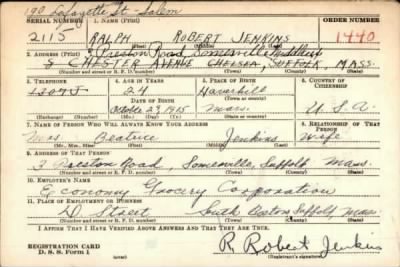 190 Lafayette St - Salem
SERIAL NUMBER 1. NAME (Print) ORDER NUMBER
2115 RALPH ROBERT JENKINS 1440
(First) (Middle) (Last)
2. ADDRESS (Print) 3 Preston Road Somerville Middlesex
5 CHESTER AVENUE CHELSEA, SUFFOLK, MASS.
(Number and street or R. F. D. number) (Town) (County) (State)
3. TELEPHONE 4. AGE IN YEARS 5. PLACE OF BIRTH 6. COUNTRY OF CITIZENSHIP
24 Haverhill
DATE OF BIRTH (Town or county)
October 23, 1915 Mass. U. S. A.
(Exchange) (Number) (Mo.) (Day) (Yr.) (State or country)
7. NAME OF PERSON WHO WILL ALWAYS KNOW YOUR ADDRESS 8. RELATIONSHIP OF THAT PERSON
Mrs. Beatrice Jenkins Wife
(Mr., Mrs., Miss) (First) (Middle) (Last)
9. ADDRESS OF THAT PERSON
3 Preston Road, Somerville, Suffolk Mass.
(Number and street or R. F. D. number) (Town) (County) (State)
10. EMPLOYER'S NAME
Economy Grocery Corporation
11. PLACE OF EMPLOYMENT OR BUSINESS
D Street South Boston Suffolk Mass.
(Number and street or R. F. D. number) (Town) (County) (State)
I AFFIRM THAT I HAVE VERIFIED ABOVE ANSWERS AND THAT THEY ARE TRUE.
REGISTRATION CARD
D. S. S. Form 1
R. Robert Jenkins
(Registrant's signature)